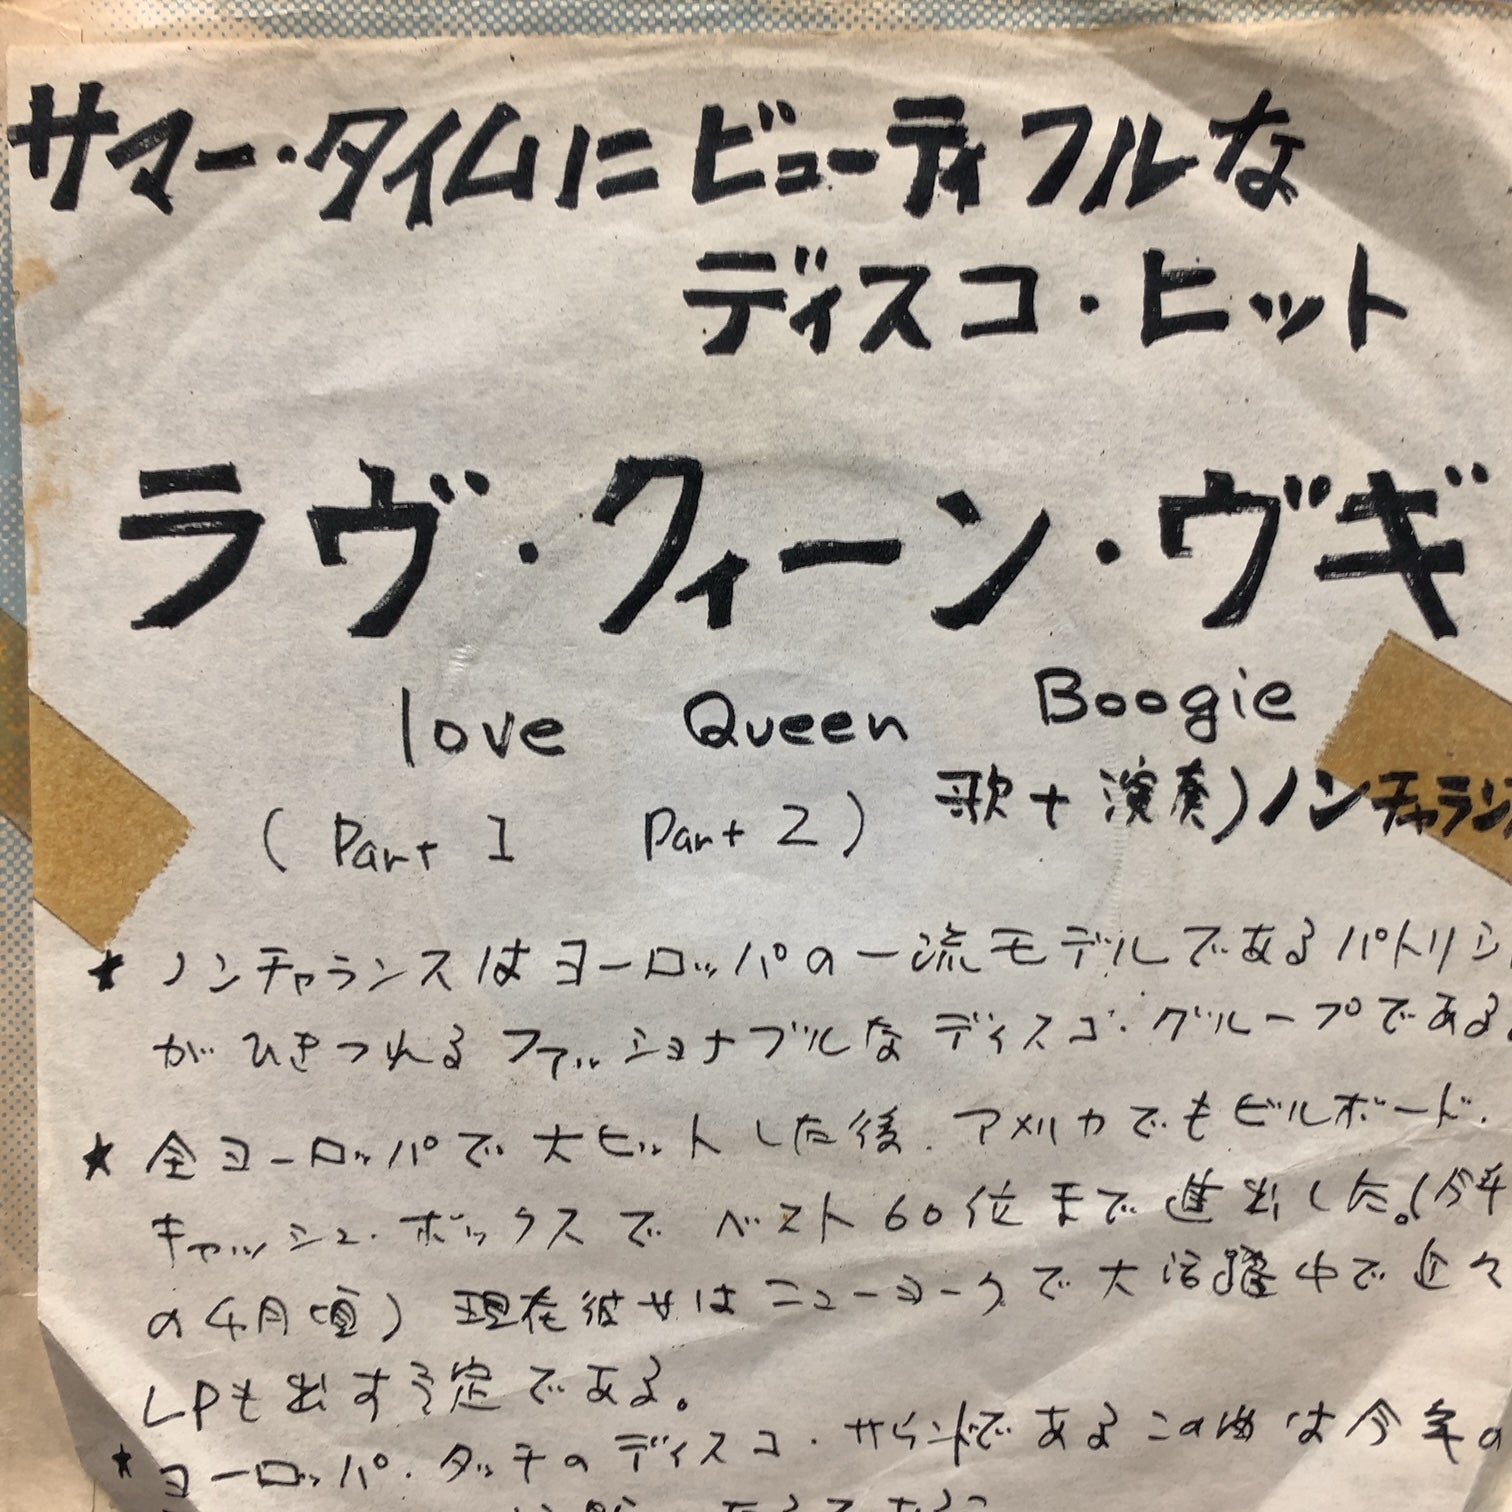 サマー・タイムにビューティフルな
ディスコ・ヒット
ラヴ・クィーン・ヴギ
love Queen Boogie
(Part 1 Part 2) 歌+演奏)ノンチャラン
★ ノンチャランスはヨーロッパの一流モデルであるパトリシ
がひきつれるファッショナブルなディスコ・グループである。
★ 全ヨーロッパで大ヒットした後、アメリカでもビルボード、
キャッシュ・ボックスでベスト60位まで進出した。(今年
の4月頃) 現在彼女はニューヨークで大活躍中で近々
LPも出す予定である。
★ ヨーロッパ・タッチのディスコ・サウンドであるこの曲は今年の